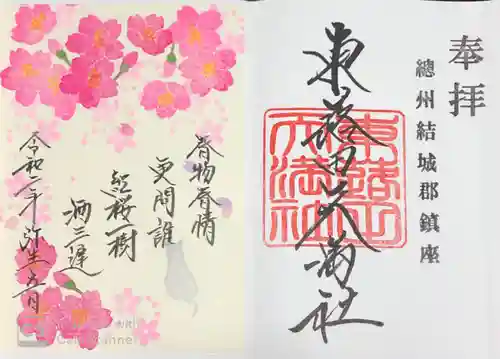 奉拝
總州結城郡鎮座
東蕗田天満社
東蕗田
天満社
春物春情
更問誰
紅桜一樹
酒三遅
令和二年弥生五日
with